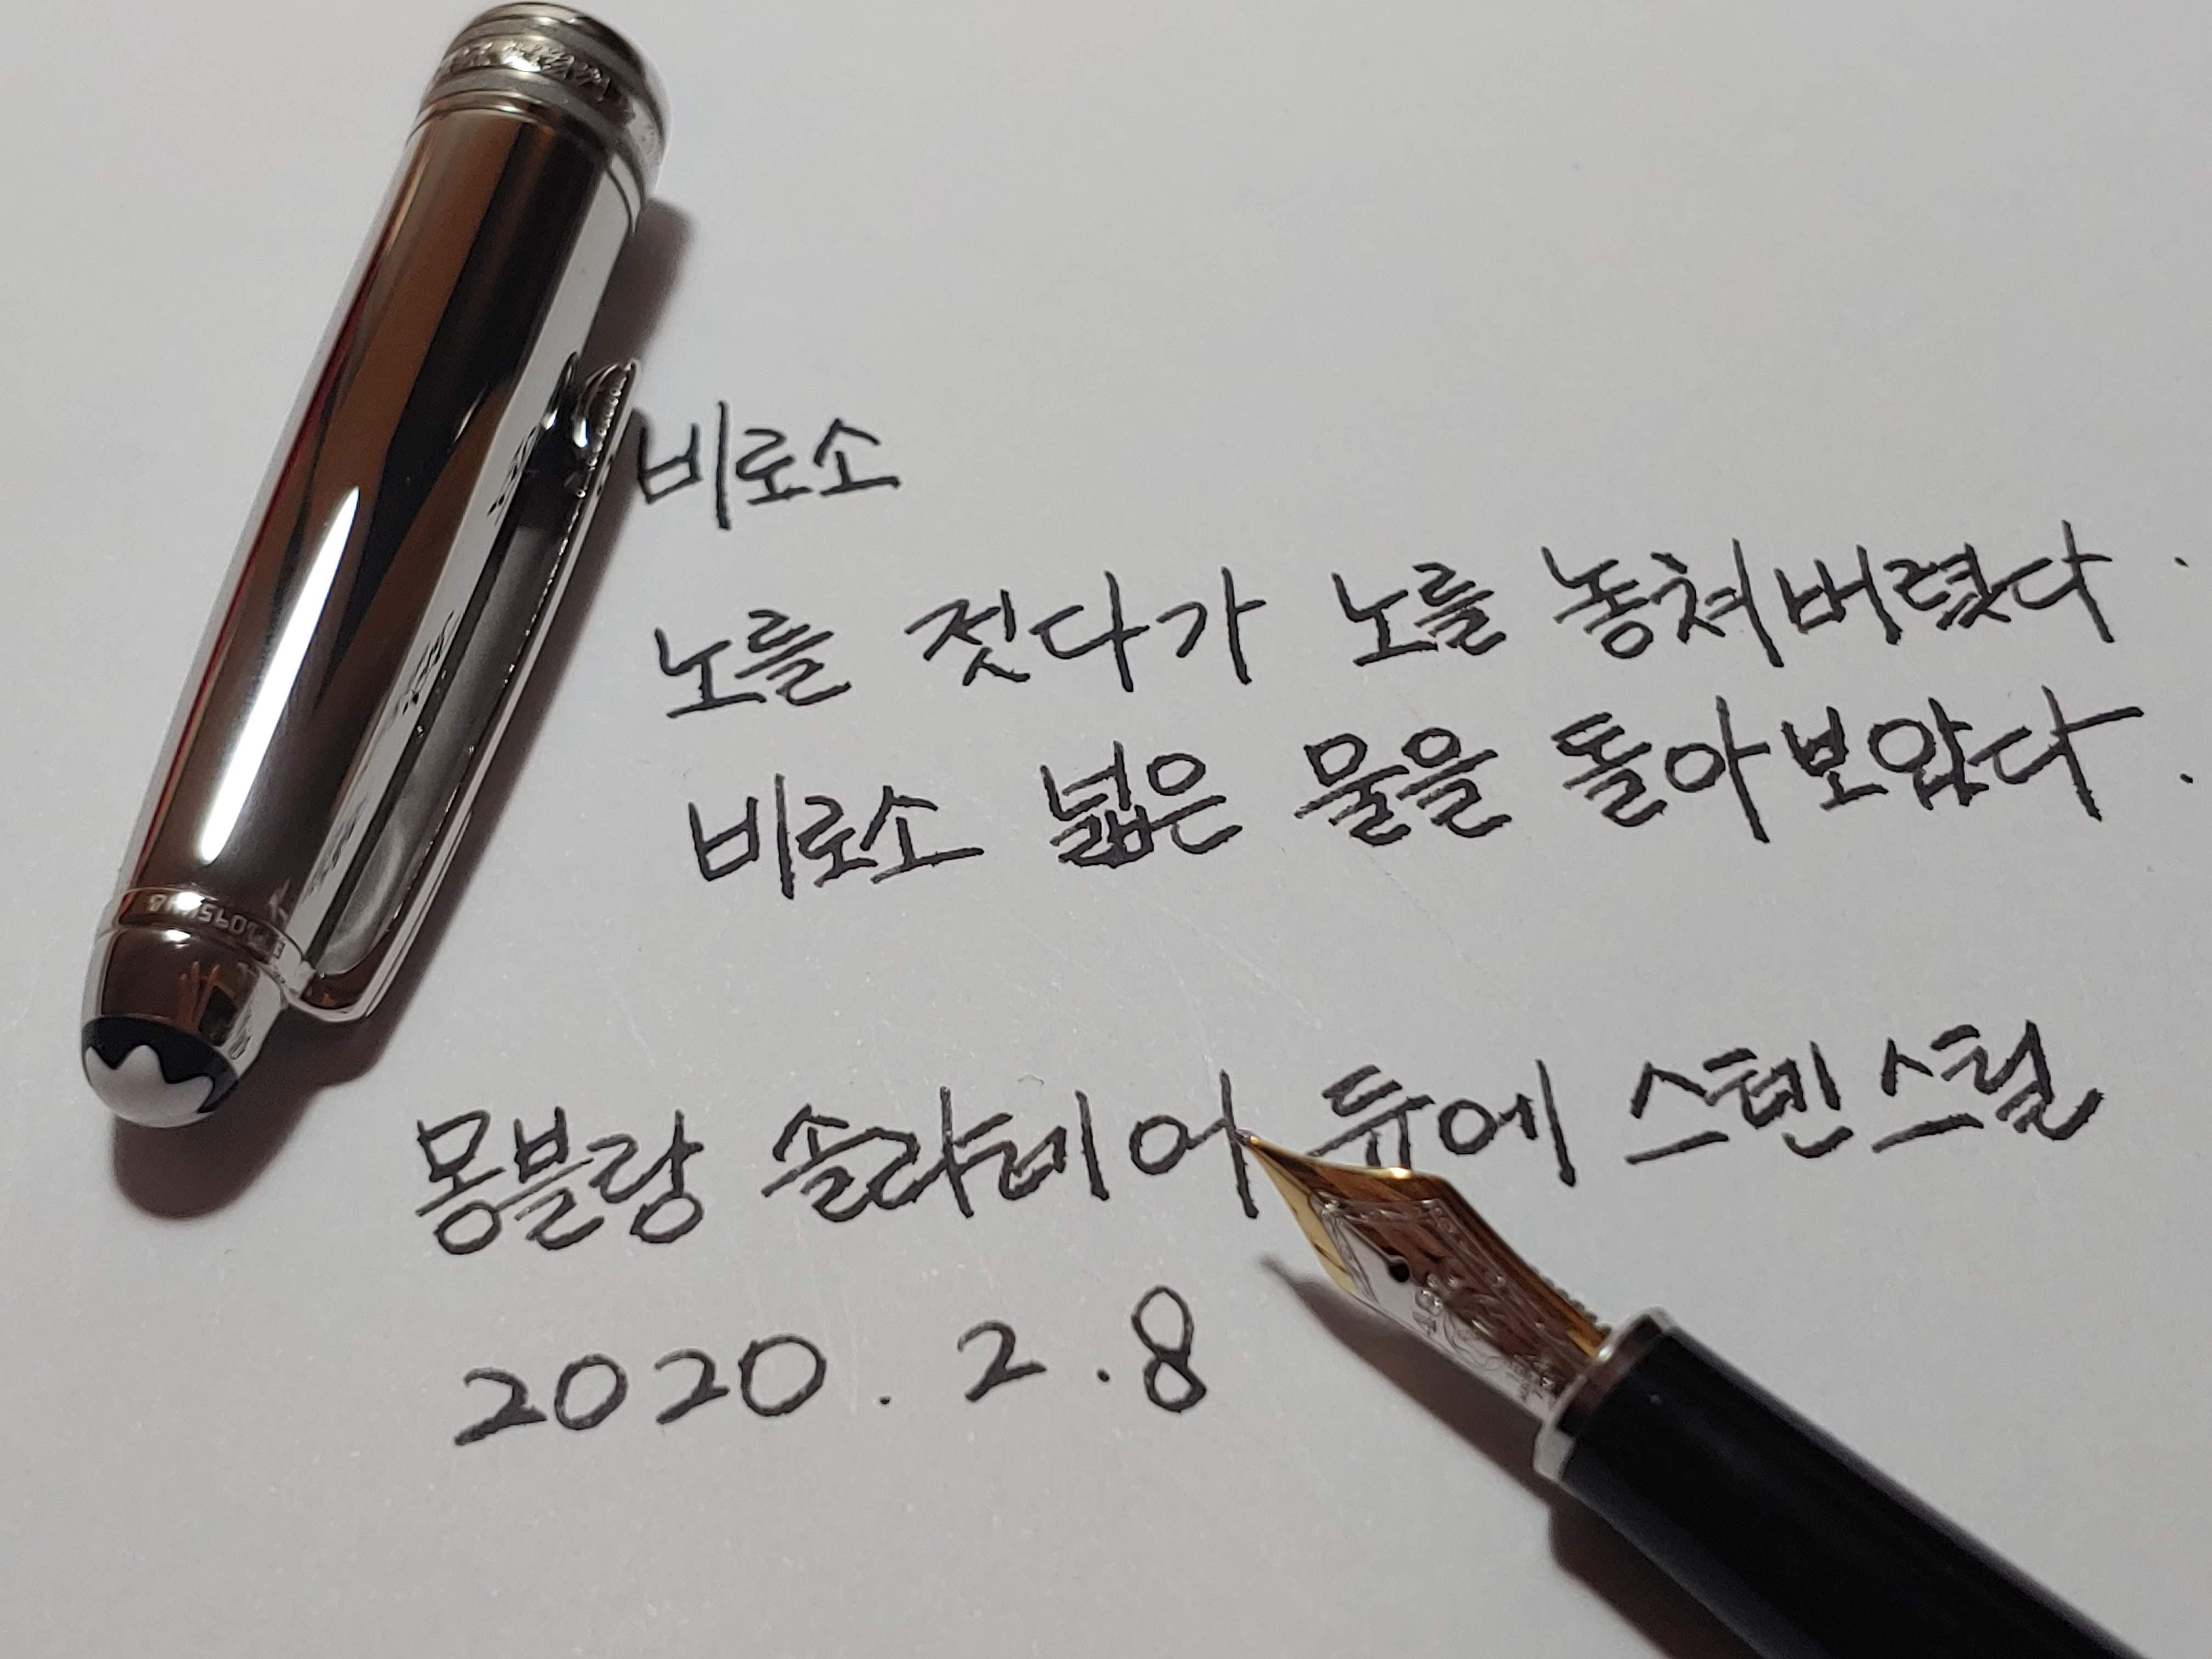 비로소
노를 젓다가 노를 놓쳐버렸다.
비로소 넓은 물을 돌아보았다.
몽블랑 솔리테어 듀에 스텐스틸
2020.2.8